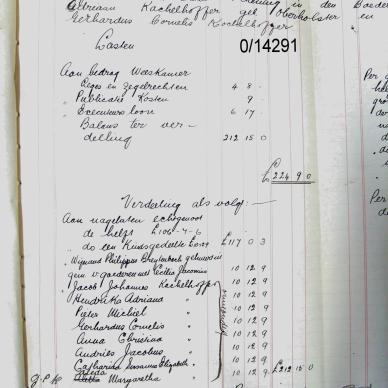 Adriaan Kachelhoffer geb Oberholster
Gerhardus Cornelis Kachelhoffer
Lasten
0/14291
Aan bedrag Weeskamer
Leges en Zegelrechten 4 8 -
" Publicatie Kosten 9
" Executeurs loon 6 17
Balans ter ver-
deeling 212 15 0
£ 224 9 0
Verdeeling als volgt:—
Aan nagelaten echtgenoot
de helft £106-4-6
" do een Kindsgedeelte £117 0 3
" Wynand Philippus Breytenbach gehuwd in
gem v goederen met Cecilia Jacomina 10 12 9
" Jacob Johannes Kachelhoffer 10 12 9
" Hendrika Adriana " 10 12 9
" Peter Michiel " 10 12 9
" Gerhardus Cornelis " 10 12 9
" Anna Christina " 10 12 9
" Andries Jacobus " 10 12 9
" Catharina Susanna Elizabeth " 10 12 9
Margaretha " 10 12 9 £212 15 0